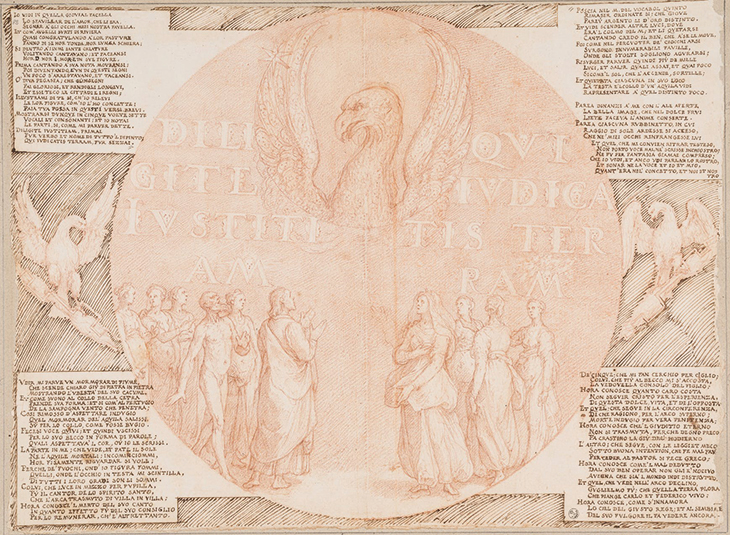 IO VIDI IN QUELLA GIOVIAL FACELLA
LO SFAVILLAR DE L'AMOR, CHE LI ERA,
SEGNAR A GLI OCCHI MIEI NOSTRA FAVELLA.
ET COM'AUGELLI SURTI DI RIVIERA
QUASI CONGRATULANDO A LOR PASTURE
FANNO DI SE HOR TONDA, HOR SCHIERA;
SI DENTRO A I LUMI SANTE CREATURE
VOLITANDO CANTAVANO; ET FACEANSI
HOR D. HOR I. HOR L. IN SUE FIGURE.
PRIMA CANTANDO A SUA NOTA MOVIENSI;
POI DIVENTANDO L'UN DI QUESTI SEGNI
UN POCO S'ARRESTAVANO, ET TACEANSI.
O DIVA PEGASEA; CHE GL'INGEGNI
FAI GLORIOSI, ET RENDIGLI LONGEVI,
ET ESSI TECO LE CITTADI E I REGNI;
ILLUSTRAMI DI TE SI, CH'IO RILEVI
LE LOR FIGURE, COM'IO L'HO CONCETTE:
PAIA TUA POSSA IN QUESTI VERSI BREVI.
MOSTRARSI DUNQUE IN CINQUE VOLTE SETTE
VOCALI ET CONSONANTI; ET IO NOTAI
LE PARTI SI, COME MI PARVER DETTE.
DILIGITE IUSTITIAM, PRIMAI
FUR VERBO ET NOME DI TUTTO 'L DIPINTO
QUI IUDICATIS TERRAM, FUR SEZZAI.
POSCIA NEL M. DEL VOCABOL QUINTO
RIMASER ORDINATE SI; CHE GIOVE
PAREV ARGENTO LI D'ORO DISTINTO.
ET VIDI SCENDER ALTRE LUCI, DOVE
ERA 'L COLMO DEL M; ET LI QUETARSI
CANTANDO CREDO IL BEN, CHE A SE LE MOVE.
POI COME NEL PERCUOTER DE' CIOCCHI ARSI
SURGONO INNUMERABILI FAVILLE,
ONDE GLI STOLTI SOGLIONO AGURARSI;
RISURGER PARVER QUINDI PIU DI MILLE
LUCI, ET SALIR QUALI ASSAI, ET QUAI POCO
SI COME 'L SOL, CHE L'ACCENDE, SORTILLE;
ET QUIETATA CIASCUNA IN SUO LOCO
LA TESTA E 'L COLLO D'UN'AQUILA VIDI
RAPPRESENTARE A QUEL DISTINTO FOCO.
PAREA DINANZI A ME CON L'ALI APERTE
LA BELLA IMAGE, CHE NEL DOLCE FRUI
LIETE FACEVA L'ANIME CONSERTE.
PAREA CIASCUNA RUBINETTO, IN CUI
RAGGIO DI SOLE ARDESSE SI ACCESO,
CHE NE' MIEI OCCHI RIFRANGESSE LUI
ET QUEL, CHE MI CONVIEN RITRAR TESTESO,
NON PORTO VOCE MAI, NE SCRISSE INCHIOSTRO;
NE FU PER FANTASIA GIAMAI COMPRESO;
CHE IO VIDI, ET ANCO UDI PARLAR LO ROSTRO,
ET SONAR NE LA VOCE ET IO ET MIO,
QUANT'ERA NEL CONCETTO, ET NOI ET NOSTRO
DILI QUI
GITE IUDICA
IUSTITI TIS TER
AM RAM
UDIR MI PARVE UN MORMORAR DI FIUME,
CHE SCENDE CHIARO GIU DI PIETRA IN PIETRA
MOSTRANDO L'UBERTA DEL SUO CACUME.
ET COME SUONO AL COLLO DELLA CETRA
PRENDE SUA FORMA; ET SI COM'AL PERTUGIO
DE LA SAMPOGNA VENTO CHE PENETRA;
COSI RIMOSSO D'ASPETTARE INDUGIO
QUEL MORMORAR DEL'AQUILA SALISSI
SU PER LO COLLO, COME FOSSE BUGIO.
FECESI VOCE QUIVI; ET QUINDI USCISSI
PER LO SUO BECCO IN FORMA DI PAROLE;
QUALI ASPETTAVA 'L COR, OV'IO LE SCRISSI.
LA PARTE IN ME; CHE VEDE, ET PATE IL SOLE
NE L'AQUILE MORTALI; INCOMINCIOMMI,
HOR FISAMENTE RIGUARDAR SI VOLE:
PERCHE DE' FUOCHI, OND'IO FIGURA FOMMI,
QUELLI, ONDE L'OCCHIO IN TESTA MI SCINTILLA,
DI TUTTI I LORO GRADI SON LI SOMMI.
COLUI, CHE LUCE IN MEZZO PER PUPILLA,
FU IL CANTOR DE LO SPIRITO SANTO,
CHE L'ARCA TRASMUTO DI VILLA IN VILLA:
HORA CONOSCE 'L MERTO DEL SUO CANTO
IN QUANTO EFFETTO FU DEL SUO CONSIGLIO
PER LO REMUNERAR, CH'E ALTRETTANTO.
DE' CINQUE; CHE MI FAN CERCHIO PER CIGLIO;
COLUI, CHE PIU AL BECCO MI S'ACCOSTA,
LA VEDOVELLA CONSOLO DEL FIGLIO:
HORA CONOSCE QUANTO CARO COSTA
NON SEGUIR CRISTO PER L'ESPERIENZA
DI QUESTA DOLCE VITA, ET DE L'OPPOSTA
ET QUEL, CHE SEGUE IN LA CIRCONFERENZA,
DI CHE RAGIONO, PER L'ARCO SUPERNO;
MORTE INDUGIO PER VERA PENITENZA;
HORA CONOSCE CHE 'L GIUDITIO ETERNO
NON SI TRASMUTA, PERCHE DEGNO PRECO
FA CRASTINO LA GIU DEL' HODIERNO
L'ALTRO; CHE SEGUE, CON LE LEGGI ET MECO
SOTTO BUONA INTENTION, CHE FE MAL FRUTTO,
PER CEDER AL PASTOR SI FECE GRECO;
HORA CONOSCE COME 'L MAL DEDUTTO
DAL SUO BEN OPERAR NON GLI E NOCIVO
AVENGA CHE SIA 'L MONDO INDI DISTRUTTO.
ET QUEL, CHE VEDI NELL'ARCO DECLIVO,
GUGLIELMO FU; CHE QUELLA TERRA PLORA
CHE PIANGE CARLO ET FEDERICO VIVO:
HORA CONOSCE, COME S'INNAMORA
LO CIEL DEL GIUSTO REGE; ET AL SEMBIANTE
DEL SUO FULGORE IL FA VEDERE ANCORA.